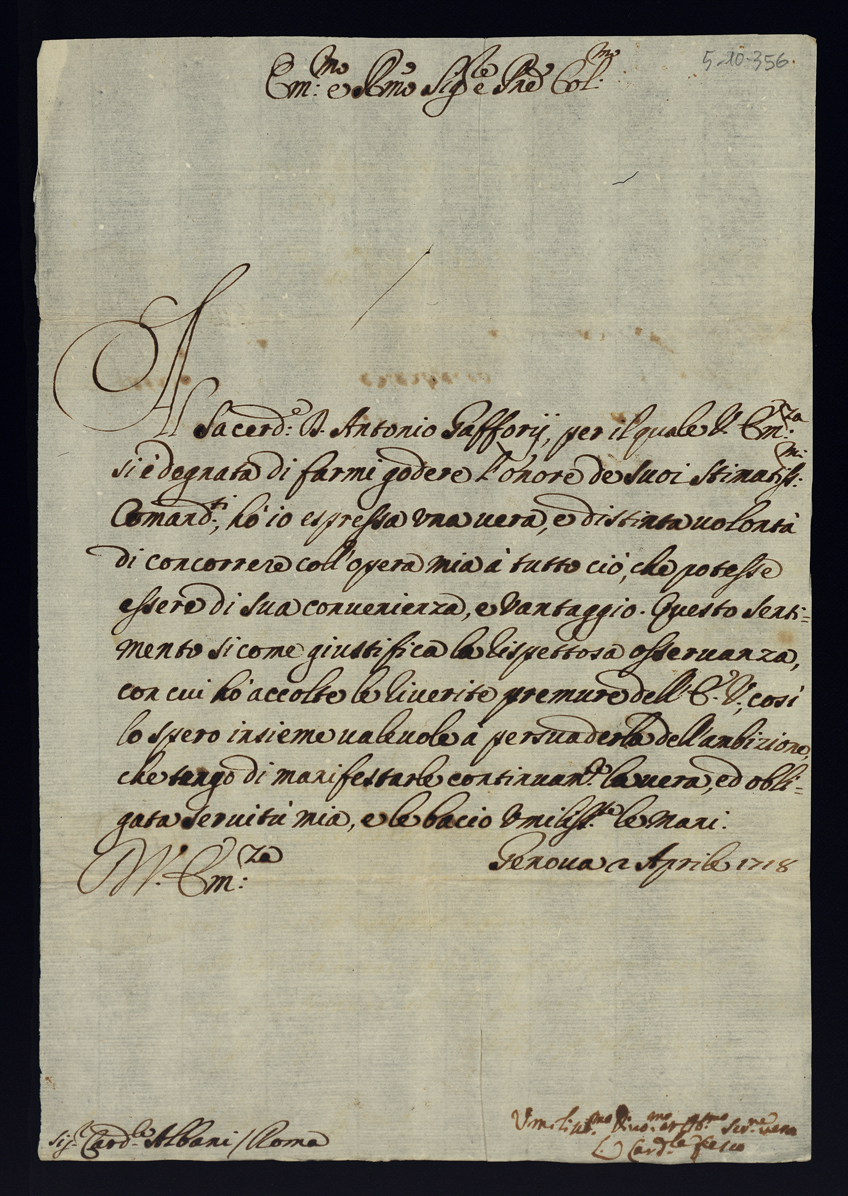 5-10-356.
Em:mo e Rmo Sigre e Pne Col:mo
Al Sacerd:e D. Antonio Gafforij, per il quale V. Em:za
si è degnata di farmi godere l'onore de suoi stimatiss:mi
Comand:ti, hò io espressa una vera, e distinta volontà
di concorrere coll'opera mia à tutto ciò, che potesse
essere di sua convenienza, e vantaggio. Questo senti=
mento si come giustifica la rispettosa osservanza,
con cui hò accolte le riverite premure dell'E. V., così
lo spero insieme valevole à persuaderla dell'ambizione,
che tengo di manifestarle continuam.te la vera, ed obli=
gata servitù mia, e le bacio umiliss.te le mani.
Di V. Em:za
Genova 2 Aprile 1718
Sig.r Card.le Albani / Roma
Umiliss.mo Divo.mo et Obb.mo Ser.re vero
L. Card.le Fiesco